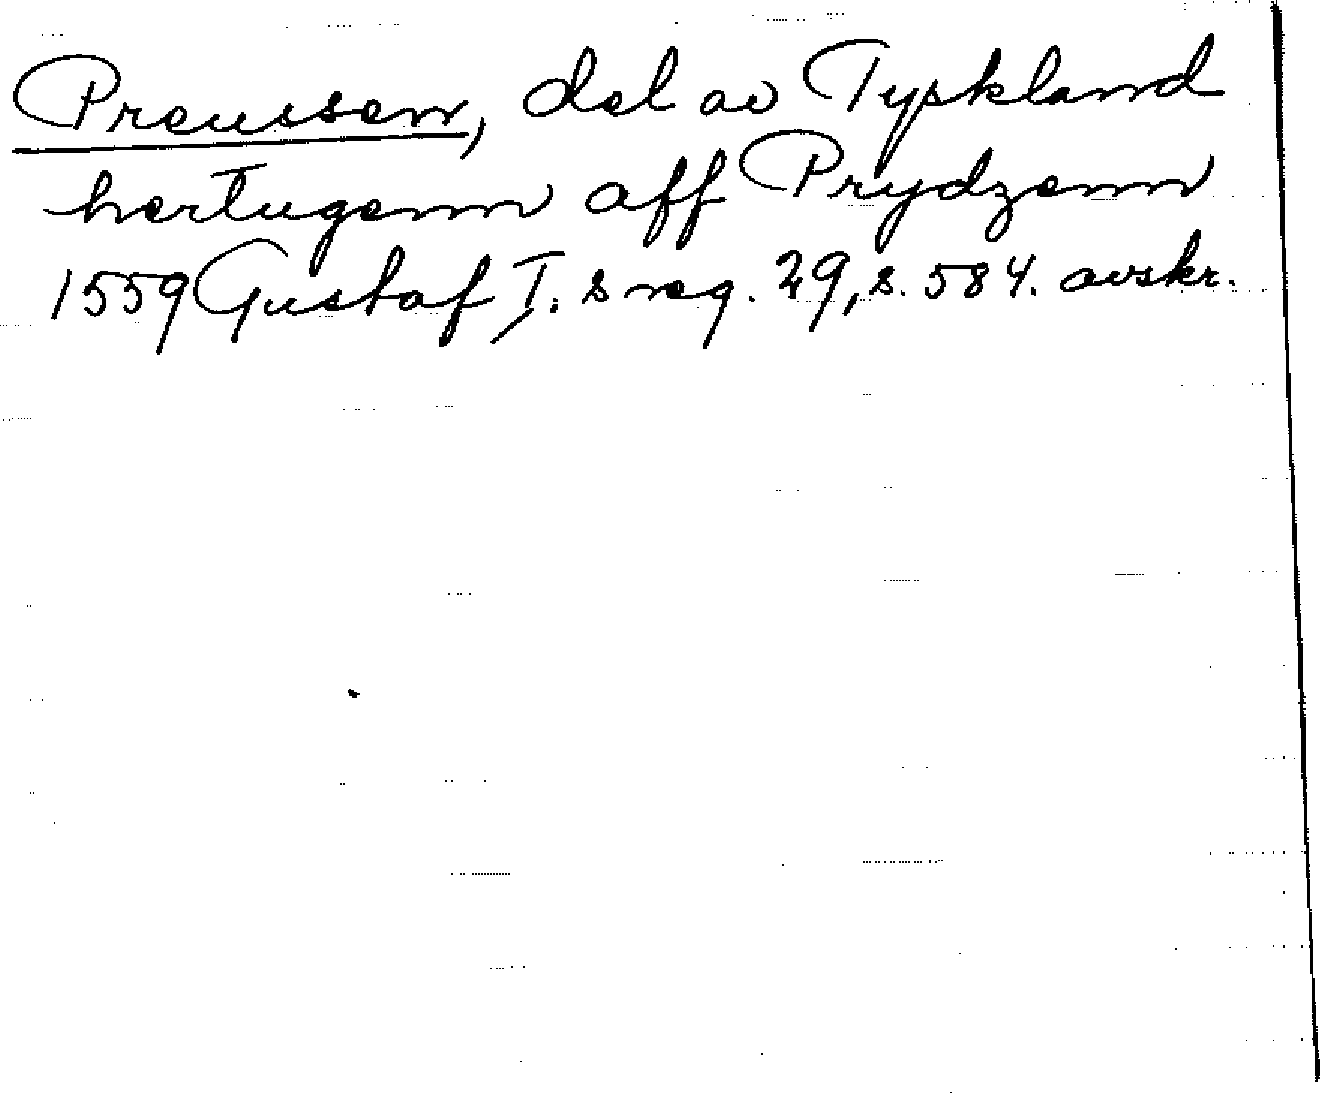 Preussen, del av Tyskland
hertugenn aff Prydzenn
1559 Gustaf I:s reg. 29, s. 584. avskr.